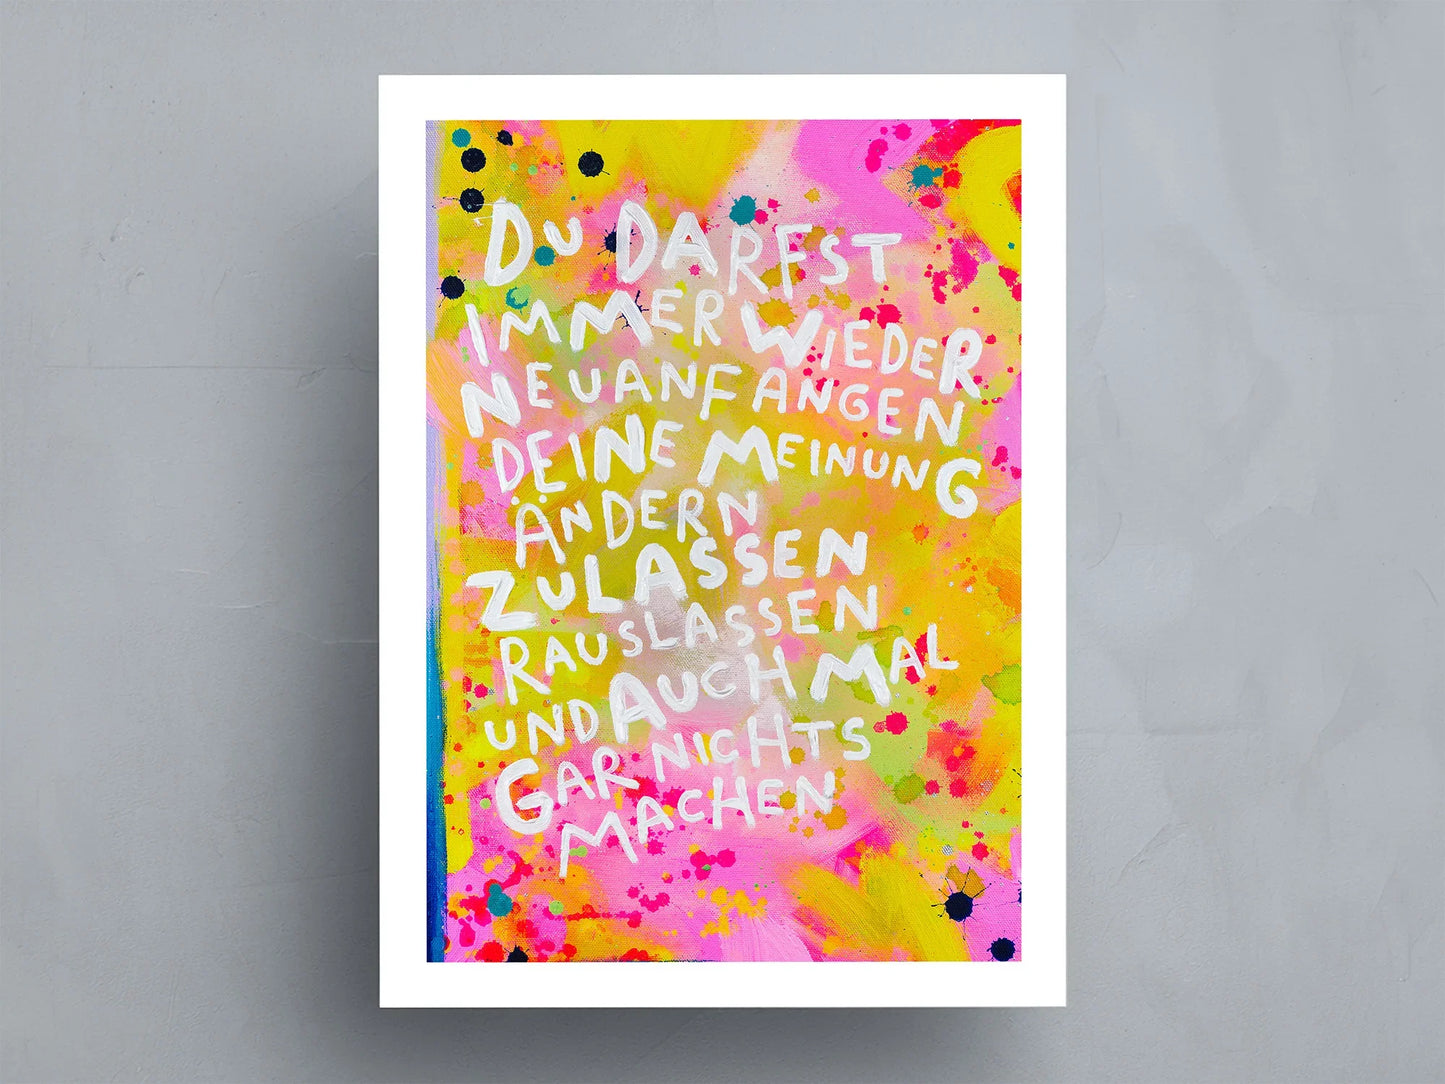 DU DARFST
IMMER WIEDER
NEUANFANGEN
DEINE MEINUNG
ÄNDERN
ZULASSEN
RAUSLASSEN
UND AUCH MAL
GAR NICHTS
MACHEN